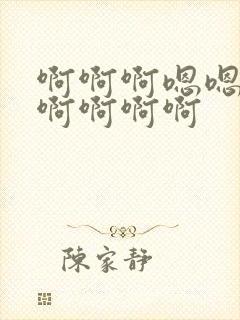 啊啊啊嗯嗯
啊啊啊啊
陳家靜